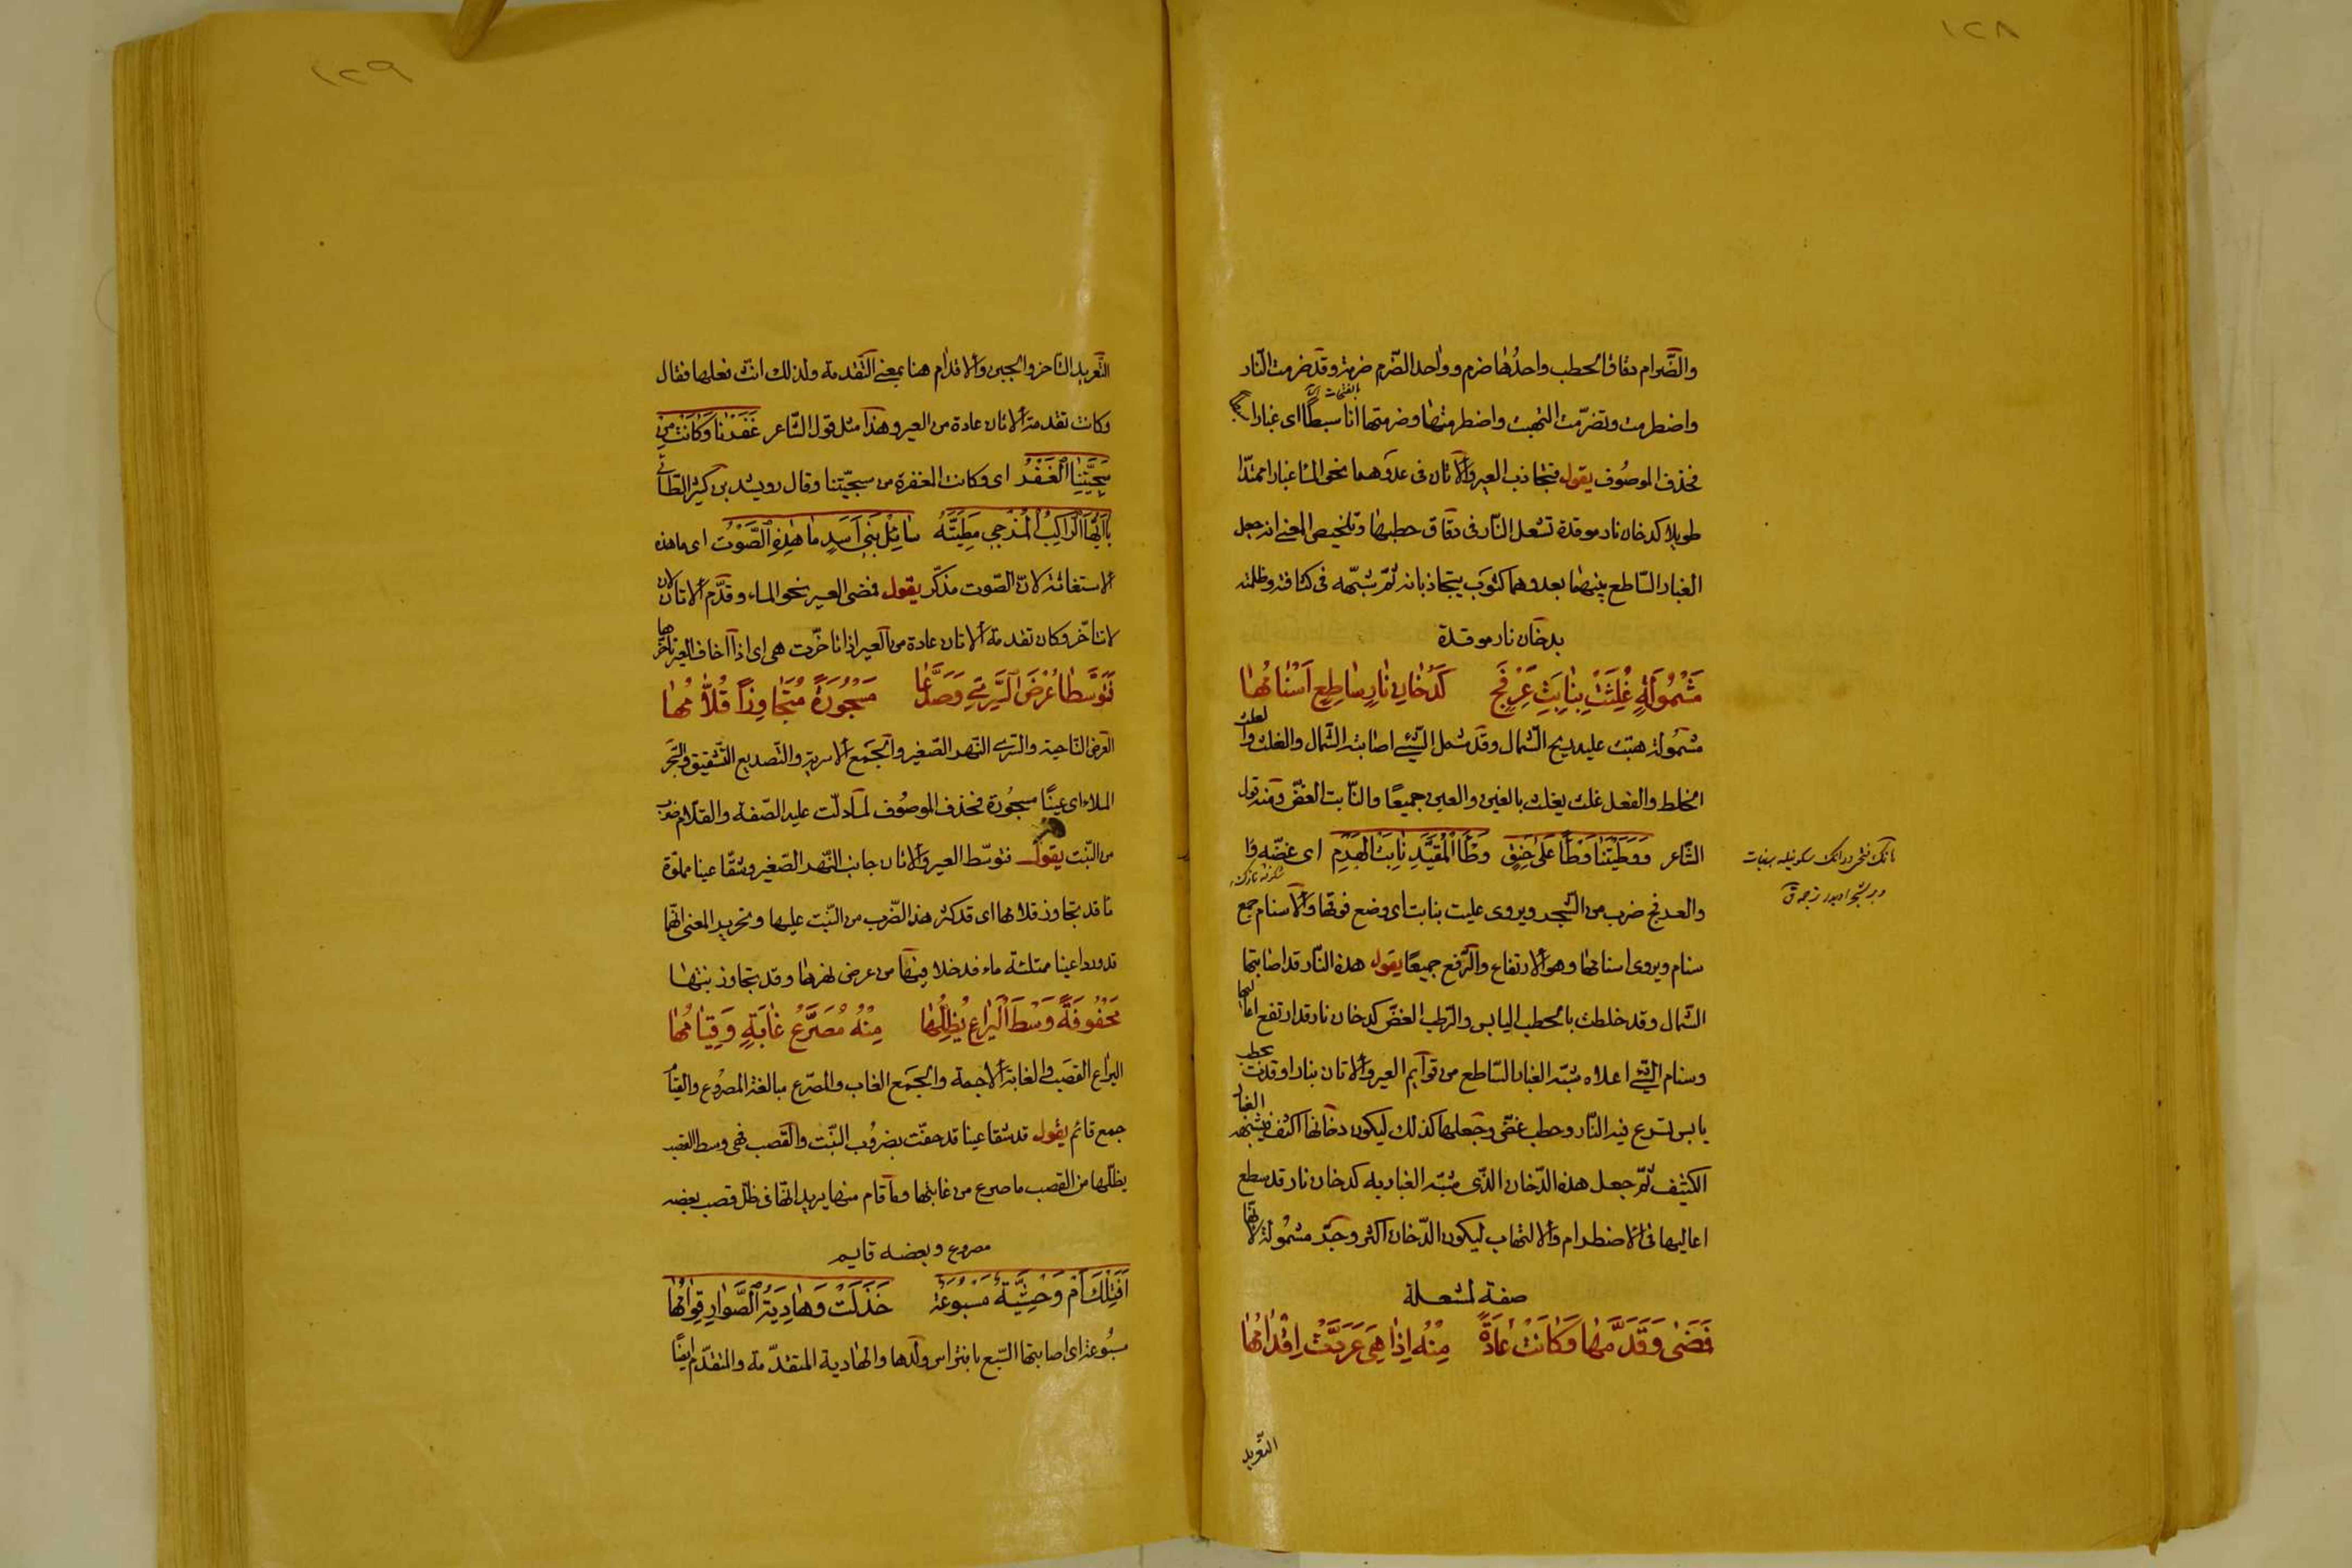 ١٢٨
والضَّرام دقاق الحطب واحدُها ضرم وواحد الضّرم ضرمة وقد ضرمت النّار
واضطرمت وتضرّمت التهبت واضطرمتها وضرمتها انا سبطًا اى غبارا
فحذف الموصُوف يقول فتجاذب العير والاتان فى عدوهما نحو الماء غبارا ممتدّا
طويلا كدخان نار موقدة تشعل النّار فى دقاق حطبها وتلخيص المعنى انه جعل
الغبار السّاطع بينهما بعدوهما كثوب يتجاذبانه ثمّ شبّهه فى كثافته وظلمته
بدخان نار موقدة
مَشْمُولَةٍ غُلِثَتْ بِنَابِتِ عَرْفَجٍ كَدُخَانِ نَارٍ سَاطِعٍ اَسْنَامُهَا
مشمُولة هبّت عليه ريح الشّمال وقد شمل الشّئ اصابته الشّمال والغلث والعلث
الخلط والفعل غلث يغلث بالغين والعين جميعًا والنّابت الغضّ ومنه قول
الشّاعر وَوَطِئْتَنَا وَطْأً عَلَى حَنَقٍ وَطْأَ الْمُقَيَّدِ نَابِتَ الْهَرْمِ اى غضّه
والعرفج ضرب من الشّجر ويروى عليت بنابت اى وضع فوقها والاسنام جمع
سنام ويروى اسنامها وهو الارتفاع والرّفع جميعًا يقول هذه النّار قد اصابتها
الشّمال وقد خلطت بالحطب اليابس والرّطب الغضّ كدخان نار قد ارتفع اعاليها
وسنام الشّئ اعلاه شبّه الغبار السّاطع من قوايم العير والاتان بنار اوقدت بحطب
يابس تسرع فيه النّار وحطب غضّ وجعلها كذلك ليكون دخانها اكثف فيشبه الغبار
الكثيف ثمّ جعل هذه الدّخان الذّى شبّه الغبار به كدخان نار قد سطع
اعاليها فى الاضطرام والالتهاب ليكون الدّخان اكثر وجرّ مشمُولة لانّها
صفة لمشعلة
فَمَضَى وَقَدَّمَهَا وَكَانَتْ عَادَةً مِنْهُ اِذَا هِيَ عَرَّدَتْ اِقْدَامُهَا
التّعريد
١٢٩
التّعريد التاخر والجبن والاقدام هنا بمعنى التّقدمة ولذلك انّث فعلها فقال
وكانت تقدمة الاتان عادة من العير وهذا مثل قول الشّاعر غَفَرْنَا وَكَانَتْ مِنْ
سَجِيَّتِنَا الْغَفْرُ اى وكانت المغفرة من سجيّتنا وقال رويشد بن كثير الطّائى
يَا اَيُّهَا الرَّاكِبُ الْمُزْجِى مَطِيَّتَهُ سَائِلْ بَنِى اَسَدٍ مَا هٰذِهِ الصَّوْتُ اى ما هذه
الاستغاثة لانّ الصّوت مذكّر يقول فمضى العير نحو الماء وقدّم الاتان لان
لا تتأخّر وكان تقدمة الاتان عادة من العير اذا تاخّرت هى اى اذا اخاف العير تاخرها
فَتَوَسَّطَا عُرْضَ السَّرِيِّ وَصَدَّعَا مَسْجُورَةً مُتَجَاوِزًا قُلَّامُهَا
العرض النّاحية والسّرى النّهر الصّغير والجمع الاسرية والتّصديع التّشقيق والسّجر
الملاء اى عينًا مسجُورة فحذف الموصُوف لما دلّت عليه الصّفة والقلّام ضرب
من النّبت يقول فتوسّط العير والاتان جانب النّهر الصّغير وشقّا عينا مملوّة
ماء قد تجاوز قلامها اى قد كثر هذا الضّرب من النّبت عليها وتحرير المعنى انّهما
قد وردا عينا ممتلئة ماء فدخلا فيها من عرض نهرها وقد تجاوز نبتها
مَحْفُوفَةً وَسْطَ الْيَرَاعِ يُظِلُّهَا مِنْهُ مُصَرَّعُ غَابَةٍ وَقِيَامُهَا
اليراع القصب والغابة الاجمة والجمع الغاب والمصرّع مبالغة المصروع والقيام
جمع قائم يقول قد شقا عينا قد حفّت بضرُوب النّبت والقصب فهى وسط القصب
يظلّها من القصب ما صرع من غابتها وما قام منها يريد انّها فى ظلّ قصب بعضه
مصروع وبعضه قايم
اَفَتِلْكَ اَمْ وَحْشِيَّةٌ مَسْبُوعَةٌ خَذَلَتْ وَهَادِيَةُ الصَّوَارِ قِوَامُهَا
مسبُوعة اى اصابتها السّبع بافتراس ولدها والهادية المتقدّمة والمتقدّم ايضًا